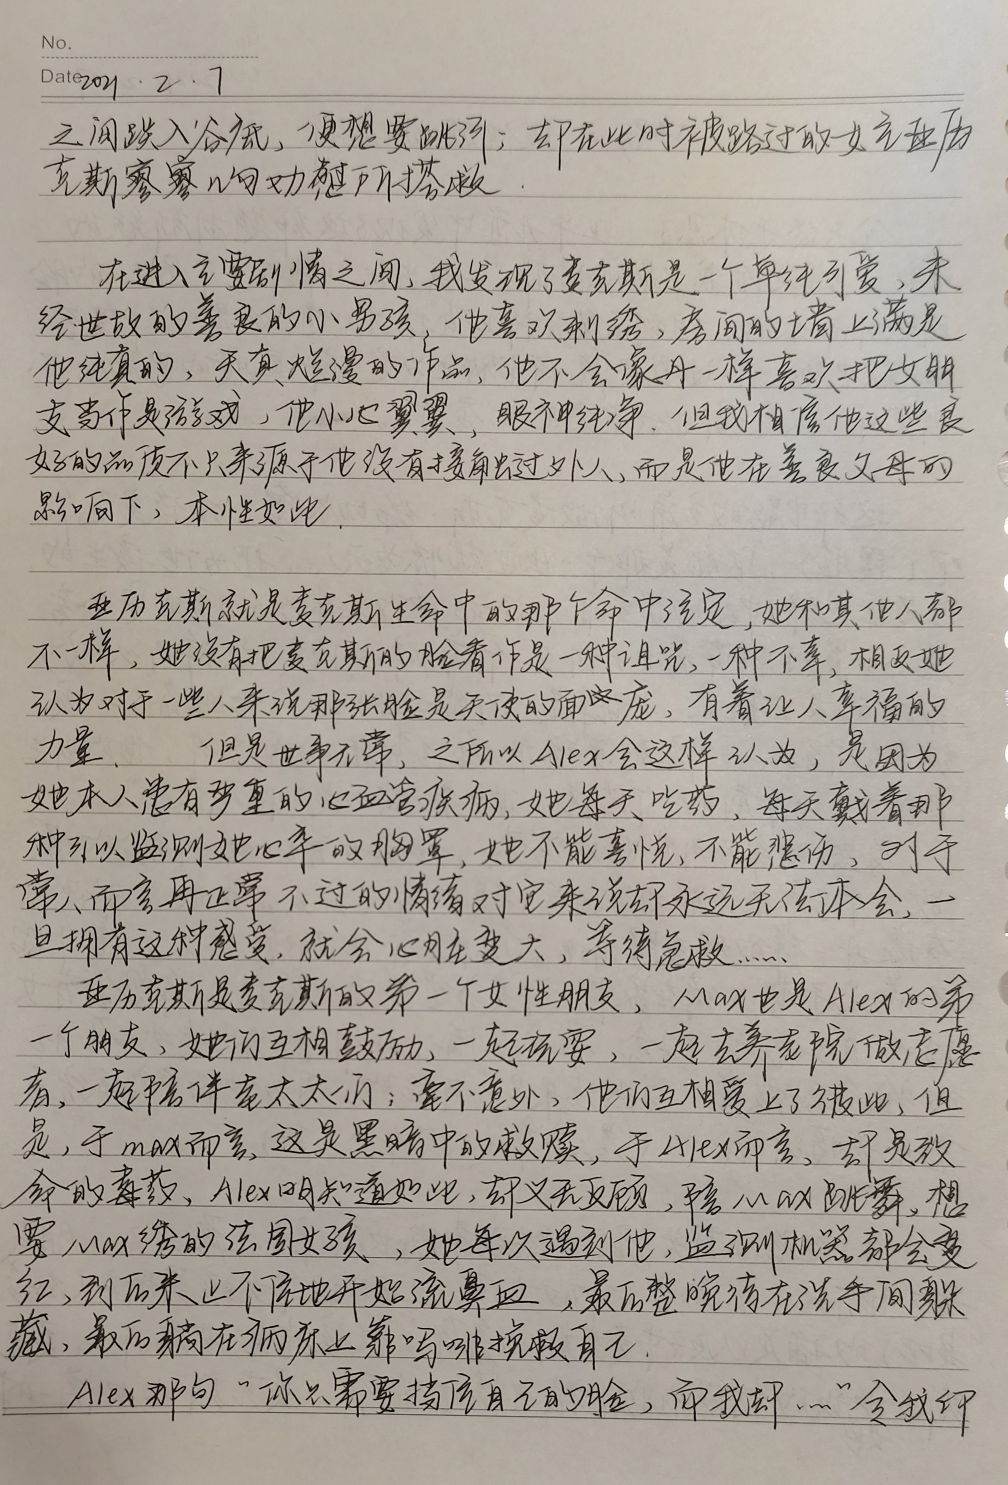 No.
Date 2021.2.7
之间跌入谷底，便想要跳河；却在此时被路过的女主亚历
克斯寥寥几句劝慰所搭救.
在进入主要剧情之间，我发现了麦克斯是一个单纯可爱，未
经世故的善良的小男孩，他喜欢刺绣，房间的墙上满是
他纯真的，天真烂漫的作品，他不会像丹一样喜欢把女朋
友当作是游戏，他小心翼翼，眼神纯净.但我相信他这些良
好的品质不只来源于他没有接触过外人，而是他在善良父母的
影响下，本性如此.
亚历克斯就是麦克斯生命中的那个命中注定，她和其他人都
不一样，她没有把麦克斯的脸看作是一种诅咒，一种不幸，相反她
认为对于一些人来说那张脸是天使的面庞，有着让人幸福的
力量. 但是世事无常，之所以Alex会这样认为，是因为
她本人患有严重的心血管疾病，她每天吃药，每天戴着那
种可以监测她心率的胸罩，她不能喜悦，不能悲伤，对于
常人而言再正常不过的情绪对它来说却永远无法体会，一
旦拥有这种感受，就会心脏变大，等待急救……
亚历克斯是麦克斯的第一个女性朋友，Max也是Alex的第
一个朋友，她们互相鼓励，一起玩耍，一起去养老院做志愿
者，一起陪伴老太太们；毫不意外，他们互相爱上了彼此，但
是，于max而言，这是黑暗中的救赎，于Alex而言，却是致
命的毒药，Alex明知道如此，却义无反顾，陪Max跳舞，想
要Max绣的法国女孩，她每次遇到他，监测机器都会变
红，到后来止不住地开始流鼻血，最后整晚待在洗手间躲
藏，最后躺在病床上靠吗啡挽救自己.
Alex那句“你只需要挡住自己的脸，而我却……”令我印